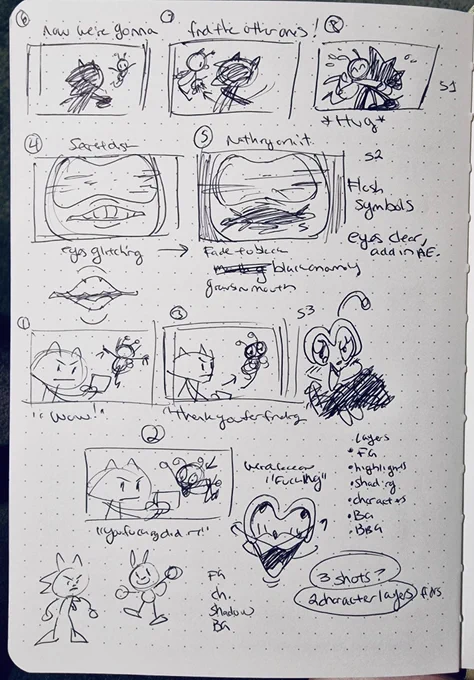 6 7 8
now we're gonna find the other ones!
S1
*Hug*
4 5
nothing on it.
S2
Flash symbols
eyes glitching → Fade to black
eyes clear, add in AE.
black anomaly
grows on mouth
1 3 S3
"wow!" "thank you for finding
2
"you fucking did it!"
"Fucking"
layers
• FG
• highlights
• shading
• characters
• BG
• BBG
FG
ch.
shadow
BG
3 shots?
2 character layers